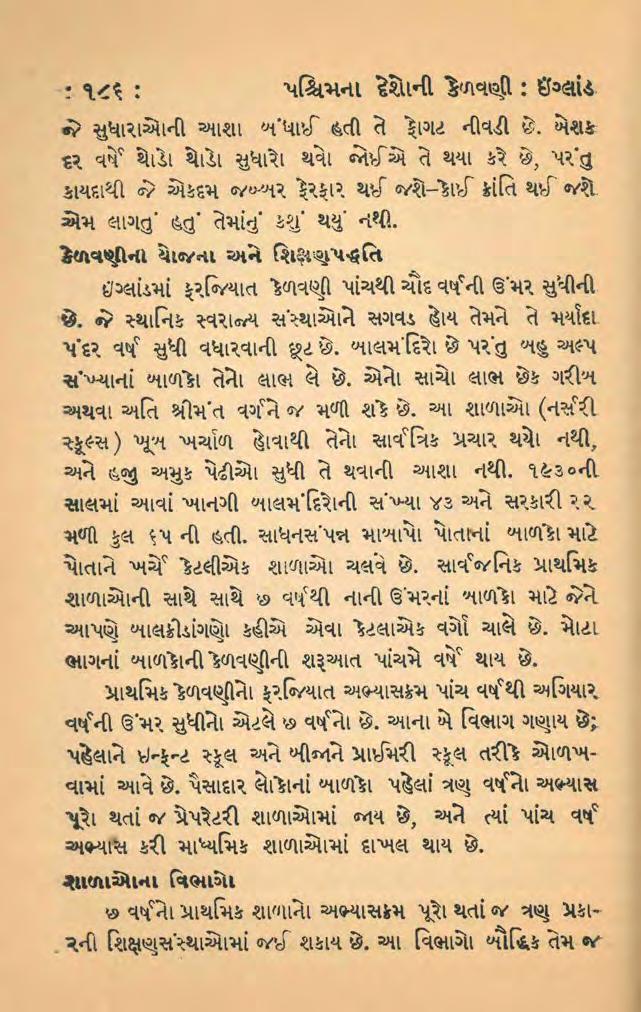 : ૧૮૬ : પશ્ચિમના દેશોની કેળવણી : ઇંગ્લાંડ
જે સુધારાઓની આશા બંધાઈ હતી તે ફોગટ નીવડી છે. બેશક
દર વર્ષે થોડો થોડો સુધારો થવો જોઈએ તે થયા કરે છે, પરંતુ
કાયદાથી જે એકદમ જબ્બર ફેરફાર થઈ જશે–કોઈ ક્રાંતિ થઈ જશે
એમ લાગતું હતું તેમાંનું કશું થયું નથી.
કેળવણીના યોજના અને શિક્ષણપદ્ધતિ
ઇંગ્લાંડમાં ફરજિયાત કેળવણી પાંચથી ચૌદ વર્ષની ઉંમર સુધીની
છે. જે સ્થાનિક સ્વરાજ્ય સંસ્થાઓને સગવડ હોય તેમને તે મર્યાદા
પંદર વર્ષ સુધી વધારવાની છૂટ છે. બાલમંદિરો છે પરંતુ બહુ અલ્પ
સંખ્યાનાં બાળકો તેનો લાભ લે છે. એનો સાચો લાભ છેક ગરીબ
અથવા અતિ શ્રીમંત વર્ગને જ મળી શકે છે. આ શાળાઓ (નર્સરી
સ્કૂલ્સ) ખૂબ ખર્ચાળ હોવાથી તેનો સાર્વત્રિક પ્રચાર થયો નથી,
અને હજુ અમુક પેઢીઓ સુધી તે થવાની આશા નથી. ૧૯૩૦ની
સાલમાં આવાં ખાનગી બાલમંદિરોની સંખ્યા ૪૩ અને સરકારી ૨૨
મળી કુલ ૬૫ ની હતી. સાધનસંપન્ન માબાપો પોતાનાં બાળકો માટે
પોતાને ખર્ચે કેટલીએક શાળાઓ ચલવે છે. સાર્વજનિક પ્રાથમિક
શાળાઓની સાથે સાથે ૭ વર્ષથી નાની ઉંમરનાં બાળકો માટે જેને
આપણે બાલક્રીડાંગણો કહીએ એવા કેટલાએક વર્ગો ચાલે છે. મોટા
ભાગનાં બાળકોની કેળવણીની શરૂઆત પાંચમે વર્ષે થાય છે.
પ્રાથમિક કેળવણીનો ફરજિયાત અભ્યાસક્રમ પાંચ વર્ષથી અગિયાર
વર્ષની ઉંમર સુધીનો એટલે ૭ વર્ષનો છે. આના બે વિભાગ ગણાય છે;
પહેલાને ઇન્ફન્ટ સ્કૂલ અને બીજાને પ્રાઈમરી સ્કૂલ તરીકે ઓળખ-
વામાં આવે છે. પૈસાદાર લોકોનાં બાળકો પહેલાં ત્રણ વર્ષનો અભ્યાસ
પૂરો થતાં જ પ્રેપરેટરી શાળાઓમાં જાય છે, અને ત્યાં પાંચ વર્ષ
અભ્યાસ કરી માધ્યમિક શાળાઓમાં દાખલ થાય છે.
શાળાઓના વિભાગો
૭ વર્ષનો પ્રાથમિક શાળાનો અભ્યાસક્રમ પૂરો થતાં જ ત્રણ પ્રકા-
રની શિક્ષણસંસ્થાઓમાં જઈ શકાય છે. આ વિભાગો બૌદ્ધિક તેમ જ